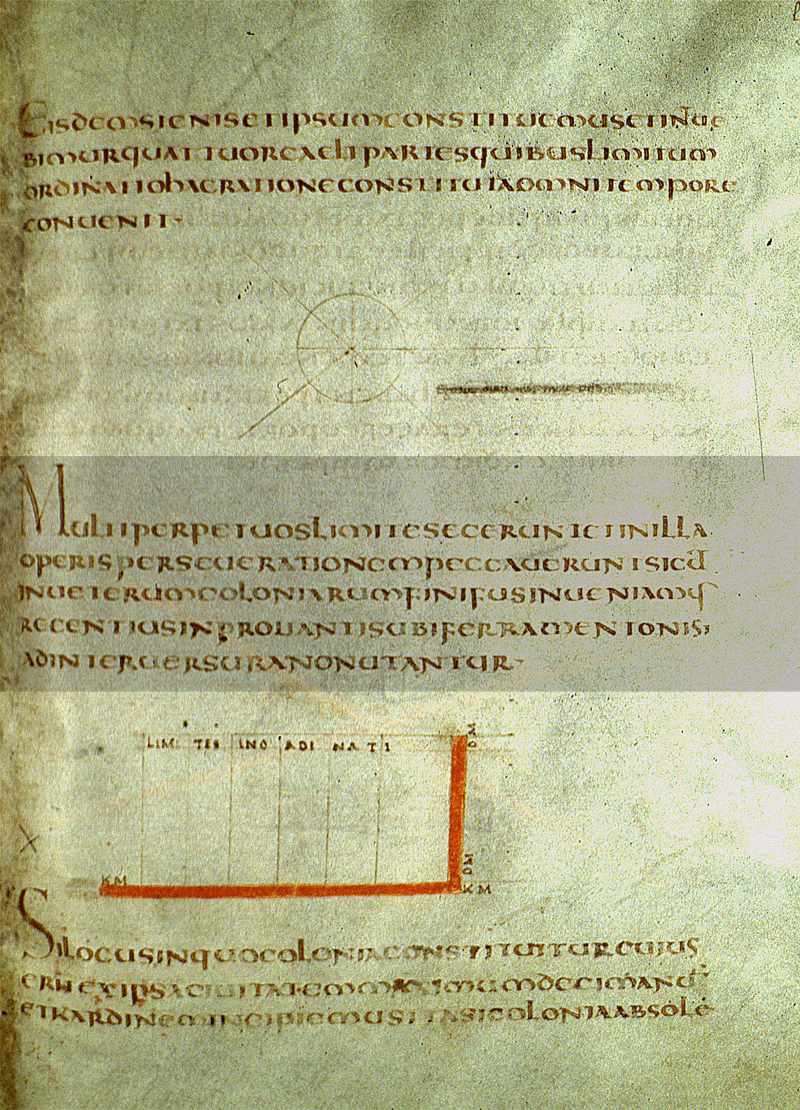 EISDEMSIGNISETIPSUMCONSTITUEMUSETINUE
BIMURQUATTUORCAELIPARTESQUIBUSLIMITUM
ORDINATIOHACRATIONECONSTITUTAOMNITEMPORE
CONUENIT·
MULTIPERPETUOSLIMITESECERUNTETINILLA
OPERISPERSEUERATIONEMPECCAUERUNTSICŪ
INUETERUMCOLONIARUMFINIFUSINUENIAMUS
RECENTIUSINPROUANTISUBIFERRAMENTONISI
ADINTERUERSURANONUTANTUR·
LIM TES INO ADI NA TI
DM
DM
KM
KM
SILOCUSINQUOCOLONIACONSTITUITURCUIUS
EXIPSACIUITATEMMAXIMUMDECIMANU
ETKARDINEMINCIPIEMUSITASICOLONIAABSOLE